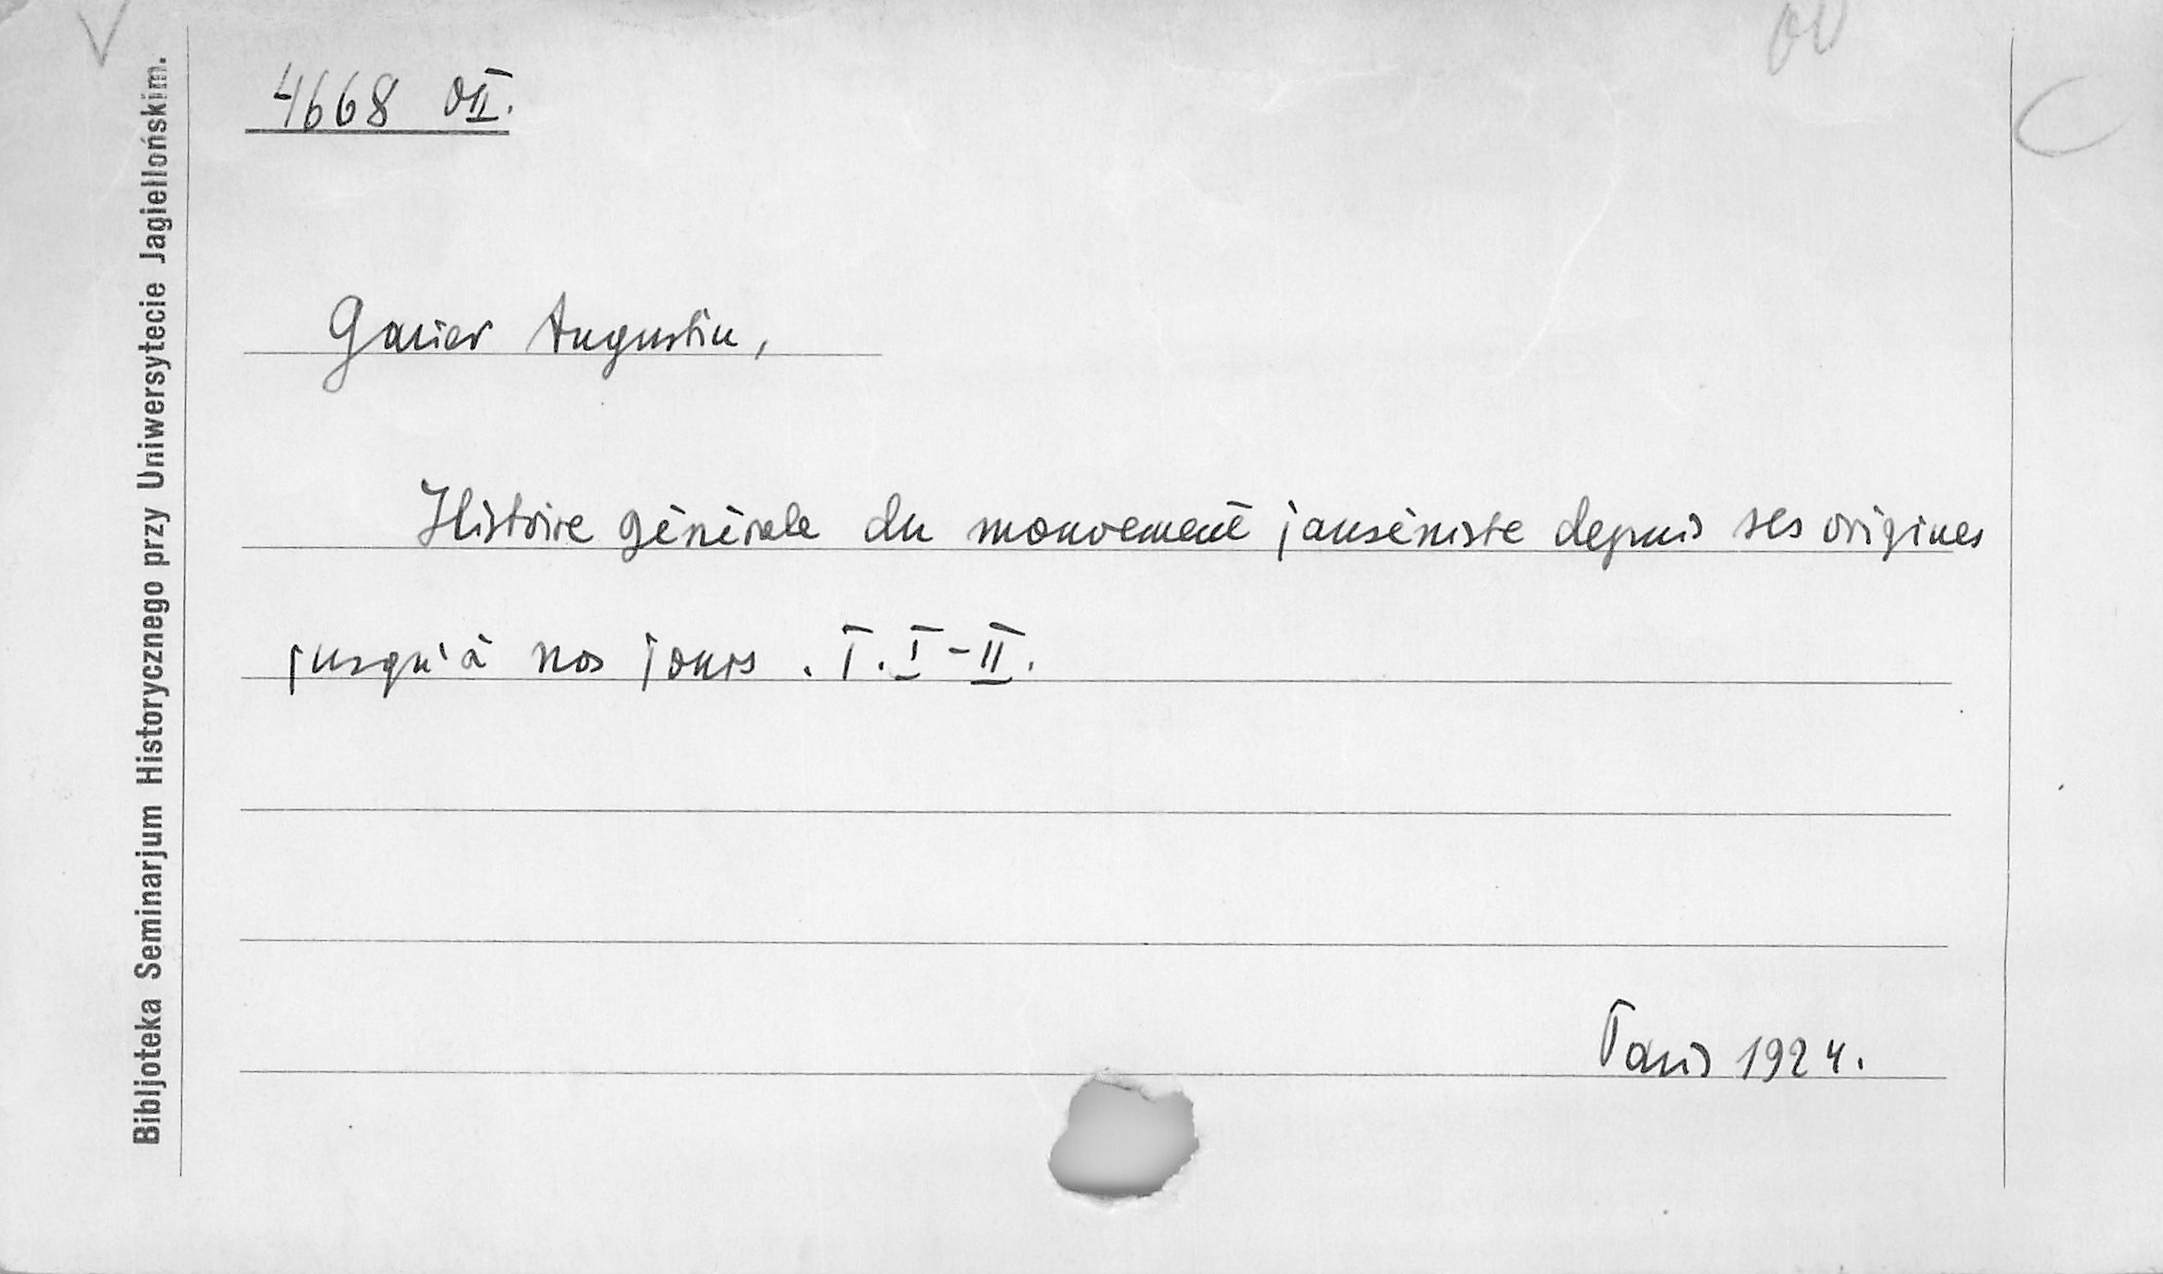 4668 OII.
Gasier Augustin,
Histoire générale du mouvement janséniste depuis ses origines
jusqu'à nos jours. T. I-II.
Paris 1924.
Bibljoteka Seminarjum Historycznego przy Uniwersytecie Jagiellońskim.